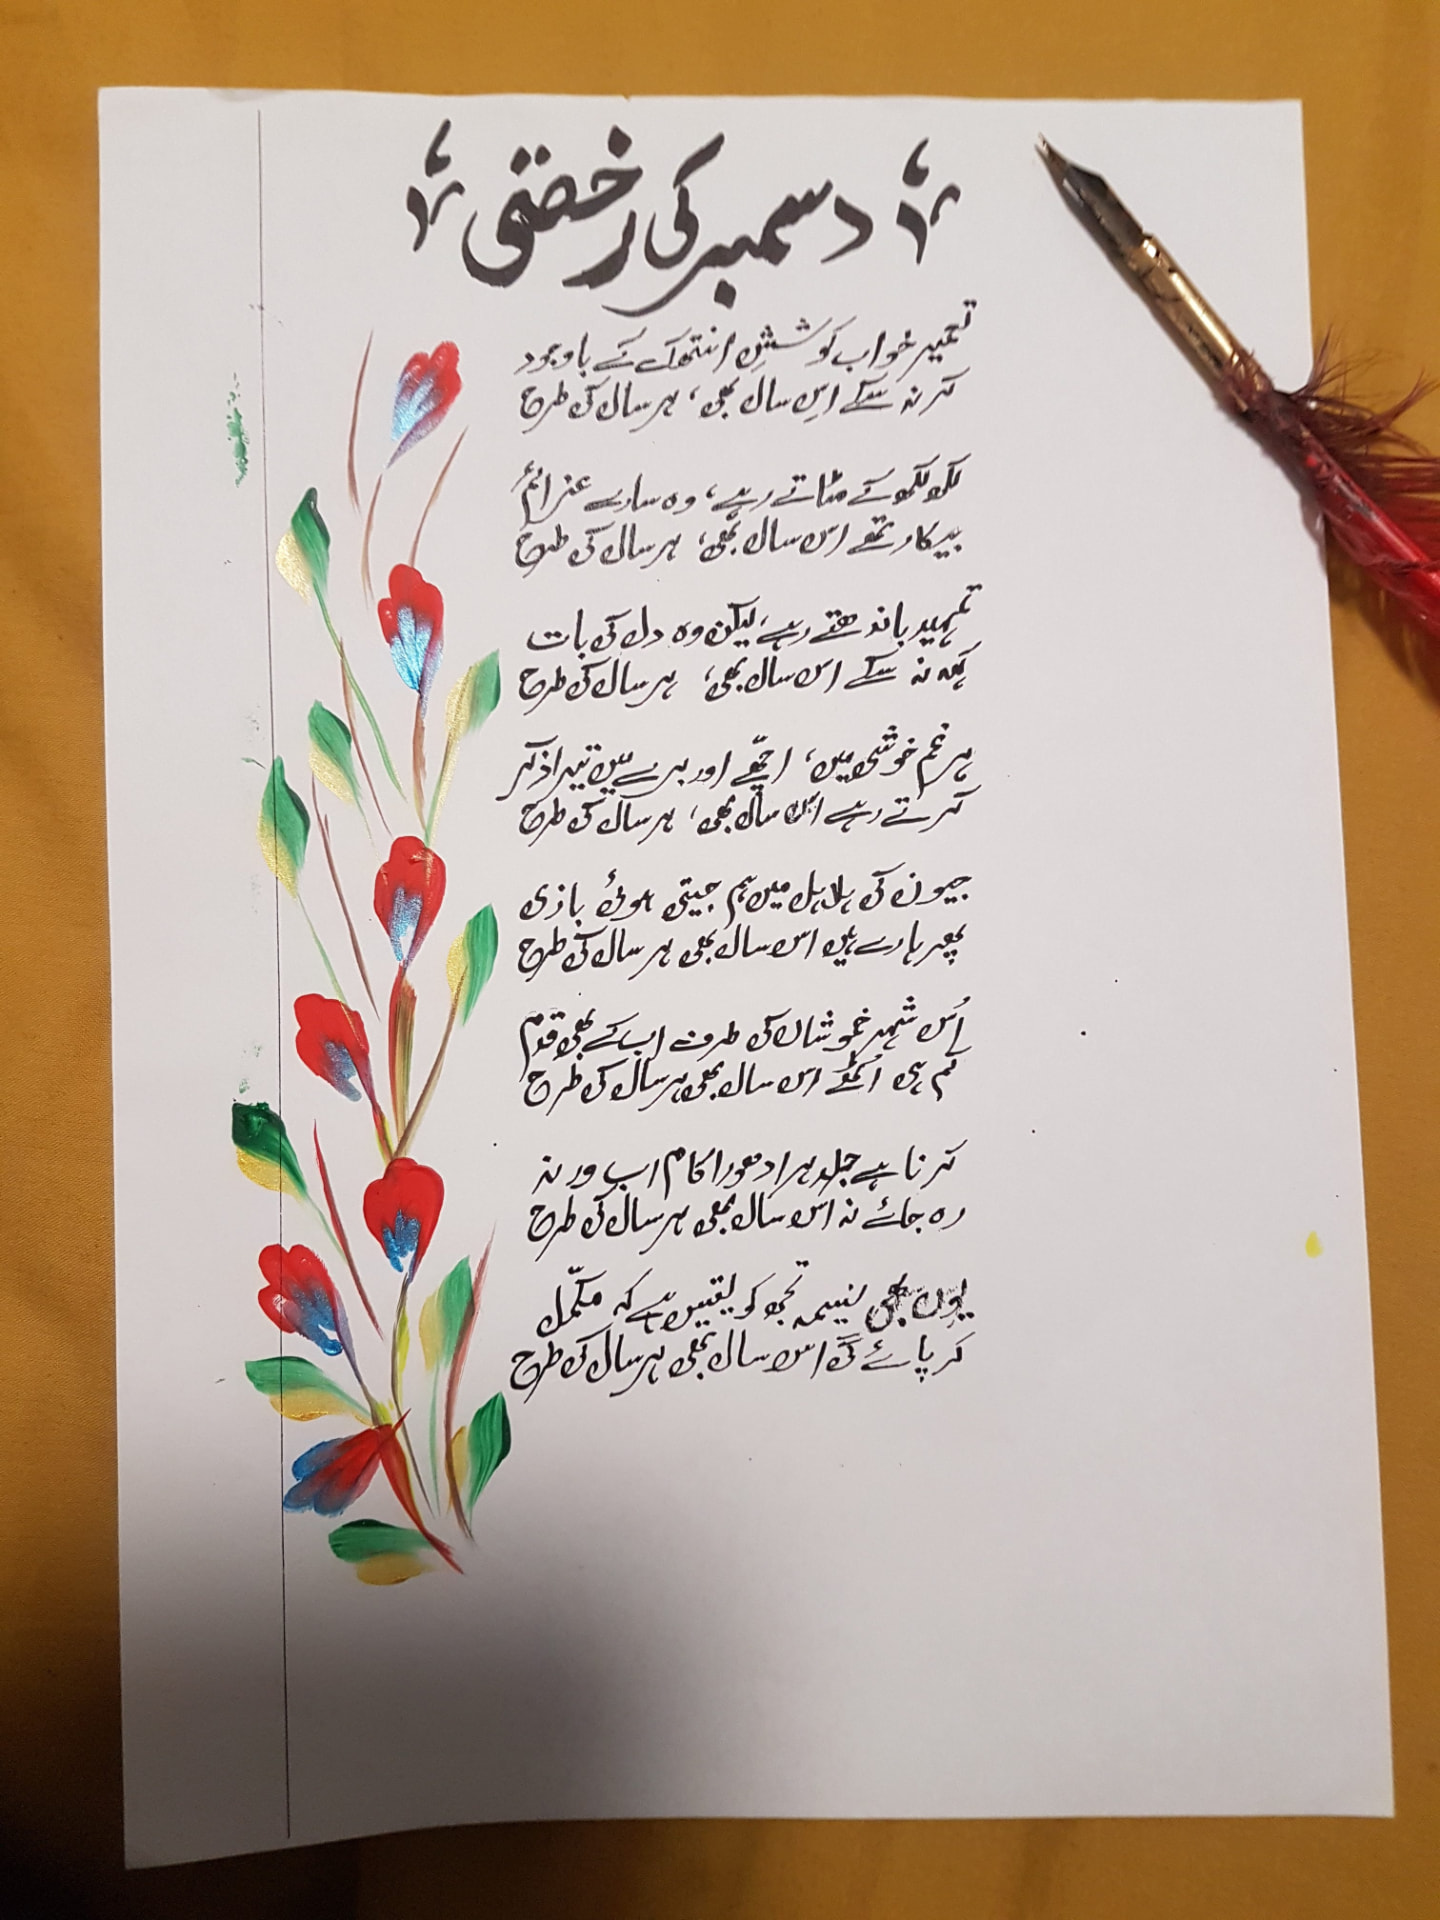 دسمبر کی رخصتی
تعبیر خواب کوششِ انتھک کے باوجود
کر نہ سکے اِس سال بھی، ہر سال کی طرح
لکھ لکھ کے مٹاتے رہے، وہ سارے عزائم
بیکار تھے اس سال بھی، ہر سال کی طرح
تمہید باندھتے رہے، لیکن وہ دل کی بات
کہہ نہ سکے اس سال بھی، ہر سال کی طرح
ہر غم خوشی میں، اچھّے اور برے میں تیرا ذکر
کرتے رہے اس سال بھی، ہر سال کی طرح
جیون کی ہلاہل میں ہم جیتی ہوئی بازی
پھر ہارے ہیں اس سال بھی ہر سال کی طرح
اُس شہر خموشاں کی طرف اب کے بھی قدم
کم ہی اُٹھے اس سال بھی ہر سال کی طرح
کرنا ہے جلد ہر ادھورا کام اب ورنہ
رہ جائے نہ اس سال بھی ہر سال کی طرح
یوں بھی نیسمہ تجھ کو یقیں ہے کہ مکمّل
کر پائے گی اس سال بھی ہر سال کی طرح